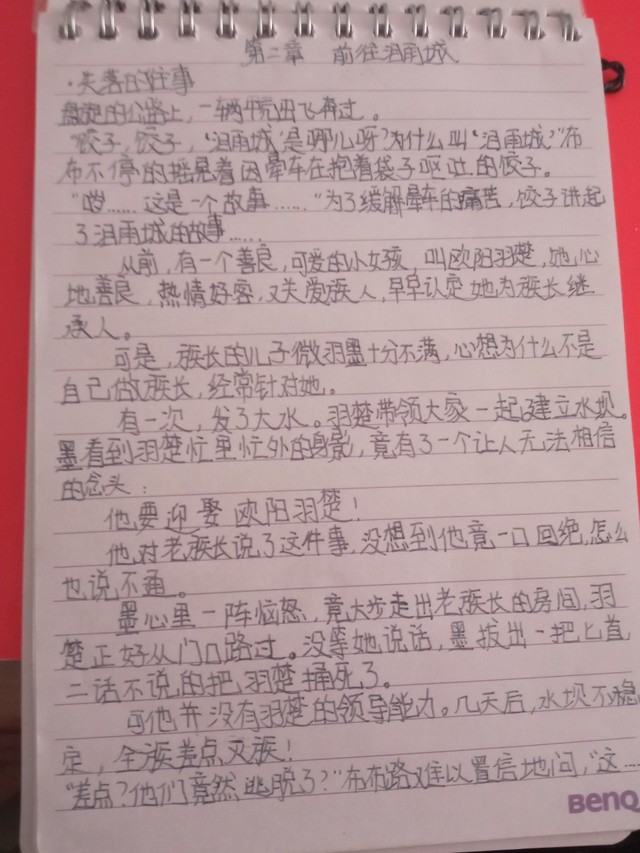 第二章 前往泪雨城
·失落的往事
盘旋的公路上，一辆牛荒田飞奔过。
“饺子，饺子，‘泪雨城’是哪儿呀？为什么叫‘泪雨城’？”布
布不停的摇晃着因晕车在抱着袋子呕吐的饺子。
“哕……这是一个故事……”为了缓解晕车的痛苦，饺子讲起
了泪雨城的故事……
从前，有一个善良，可爱的小女孩，叫欧阳羽楚，她心
地善良，热情好客，又失爱族人，早早认定她为族长继
承人。
可是，族长的儿子微羽墨十分不满，心想为什么不是
自己做族长，经常针对她。
有一次，发了大水。羽楚带领大家一起建立水坝。
墨看到羽楚忙里忙外的身影，竟有了一个让人无法相信
的念头：
他要迎娶欧阳羽楚！
他对老族长说了这件事，没想到他竟一口回绝，怎么
也说不通。
墨心里一阵恼怒，竟大步走出老族长的房间，羽
楚正好从门口路过。没等她说话，墨拔出一把匕首，
二话不说的把羽楚捅死了。
可他并没有羽楚的领导能力。几天后，水坝不稳
定，全族差点灭族！
“差点？他们竟然逃脱了？”布布路难以置信地问，“这……
BenQ